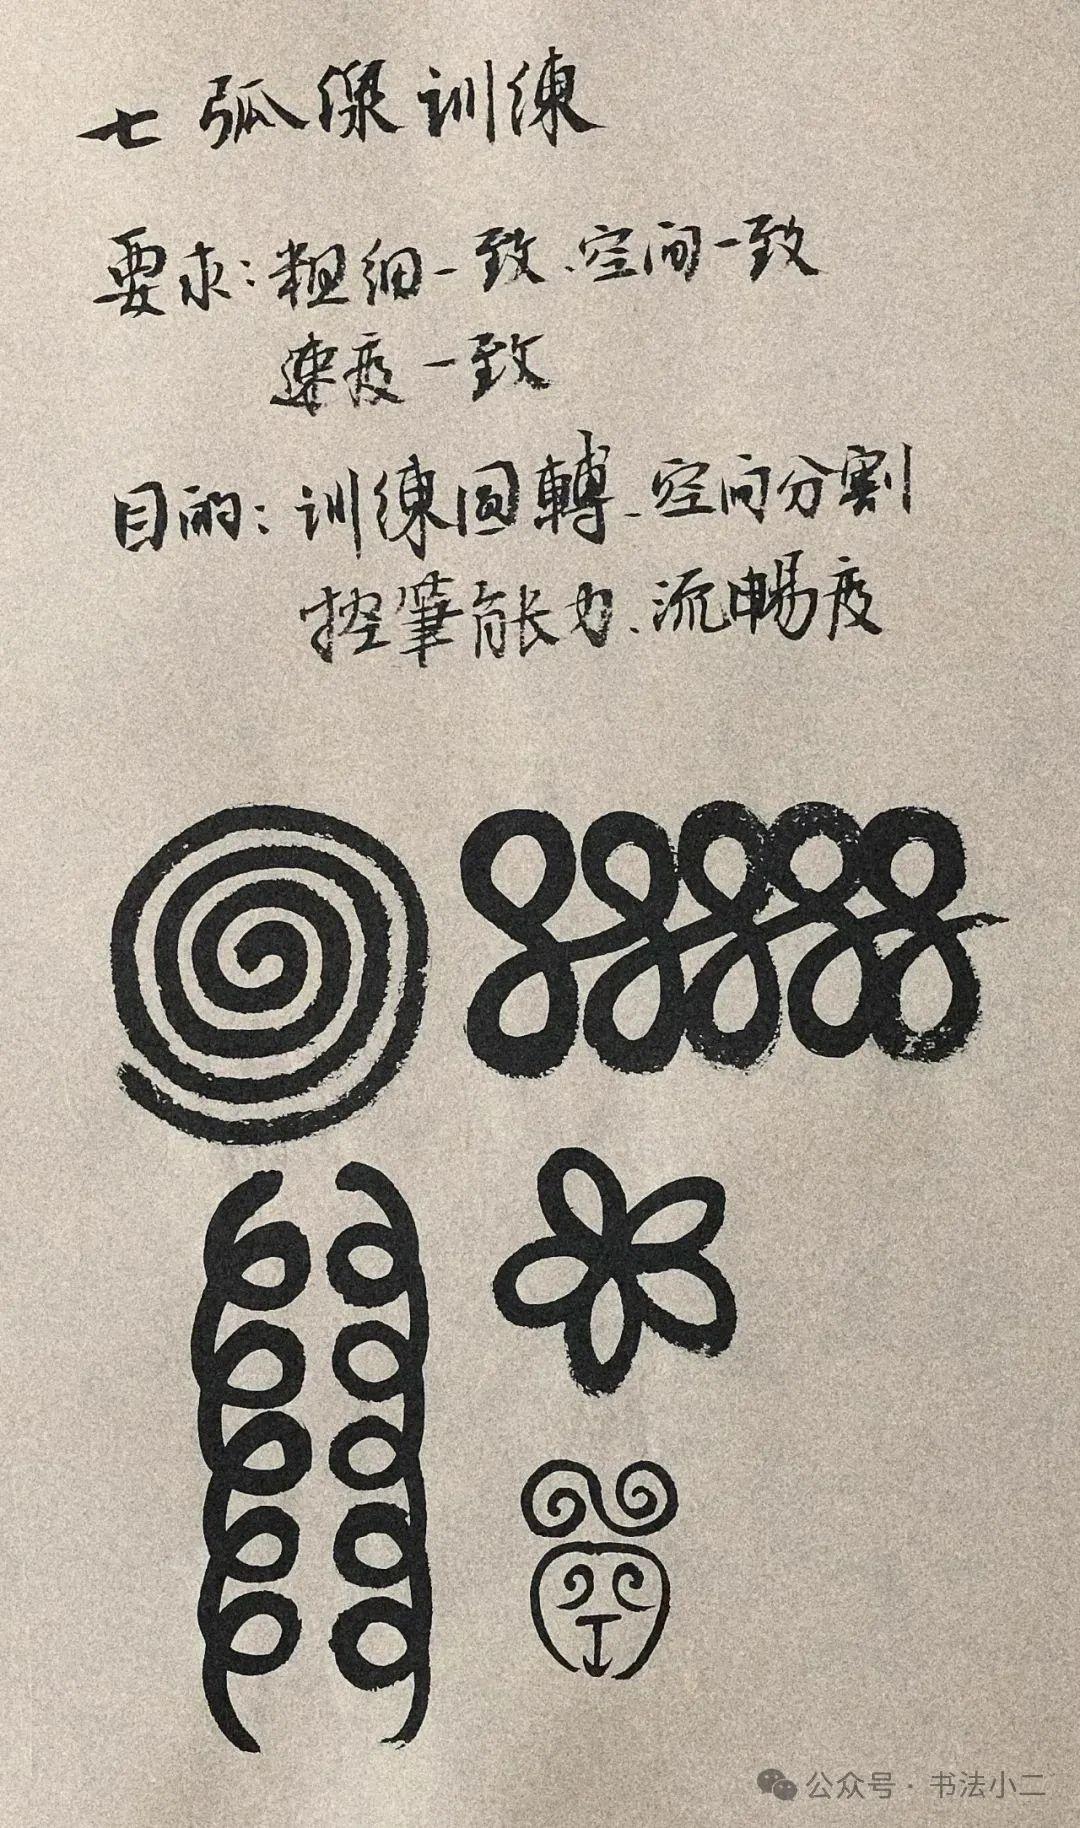 七 弧线训练
要求：粗细一致、空间一致
速度一致
目的：训练圆轉、空间分割
控筆能力、流暢度
公众号·书法小二